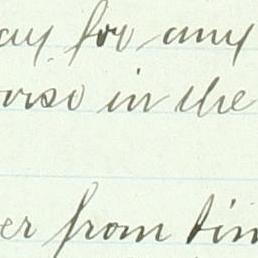 ay for any
orse in the
er from tim